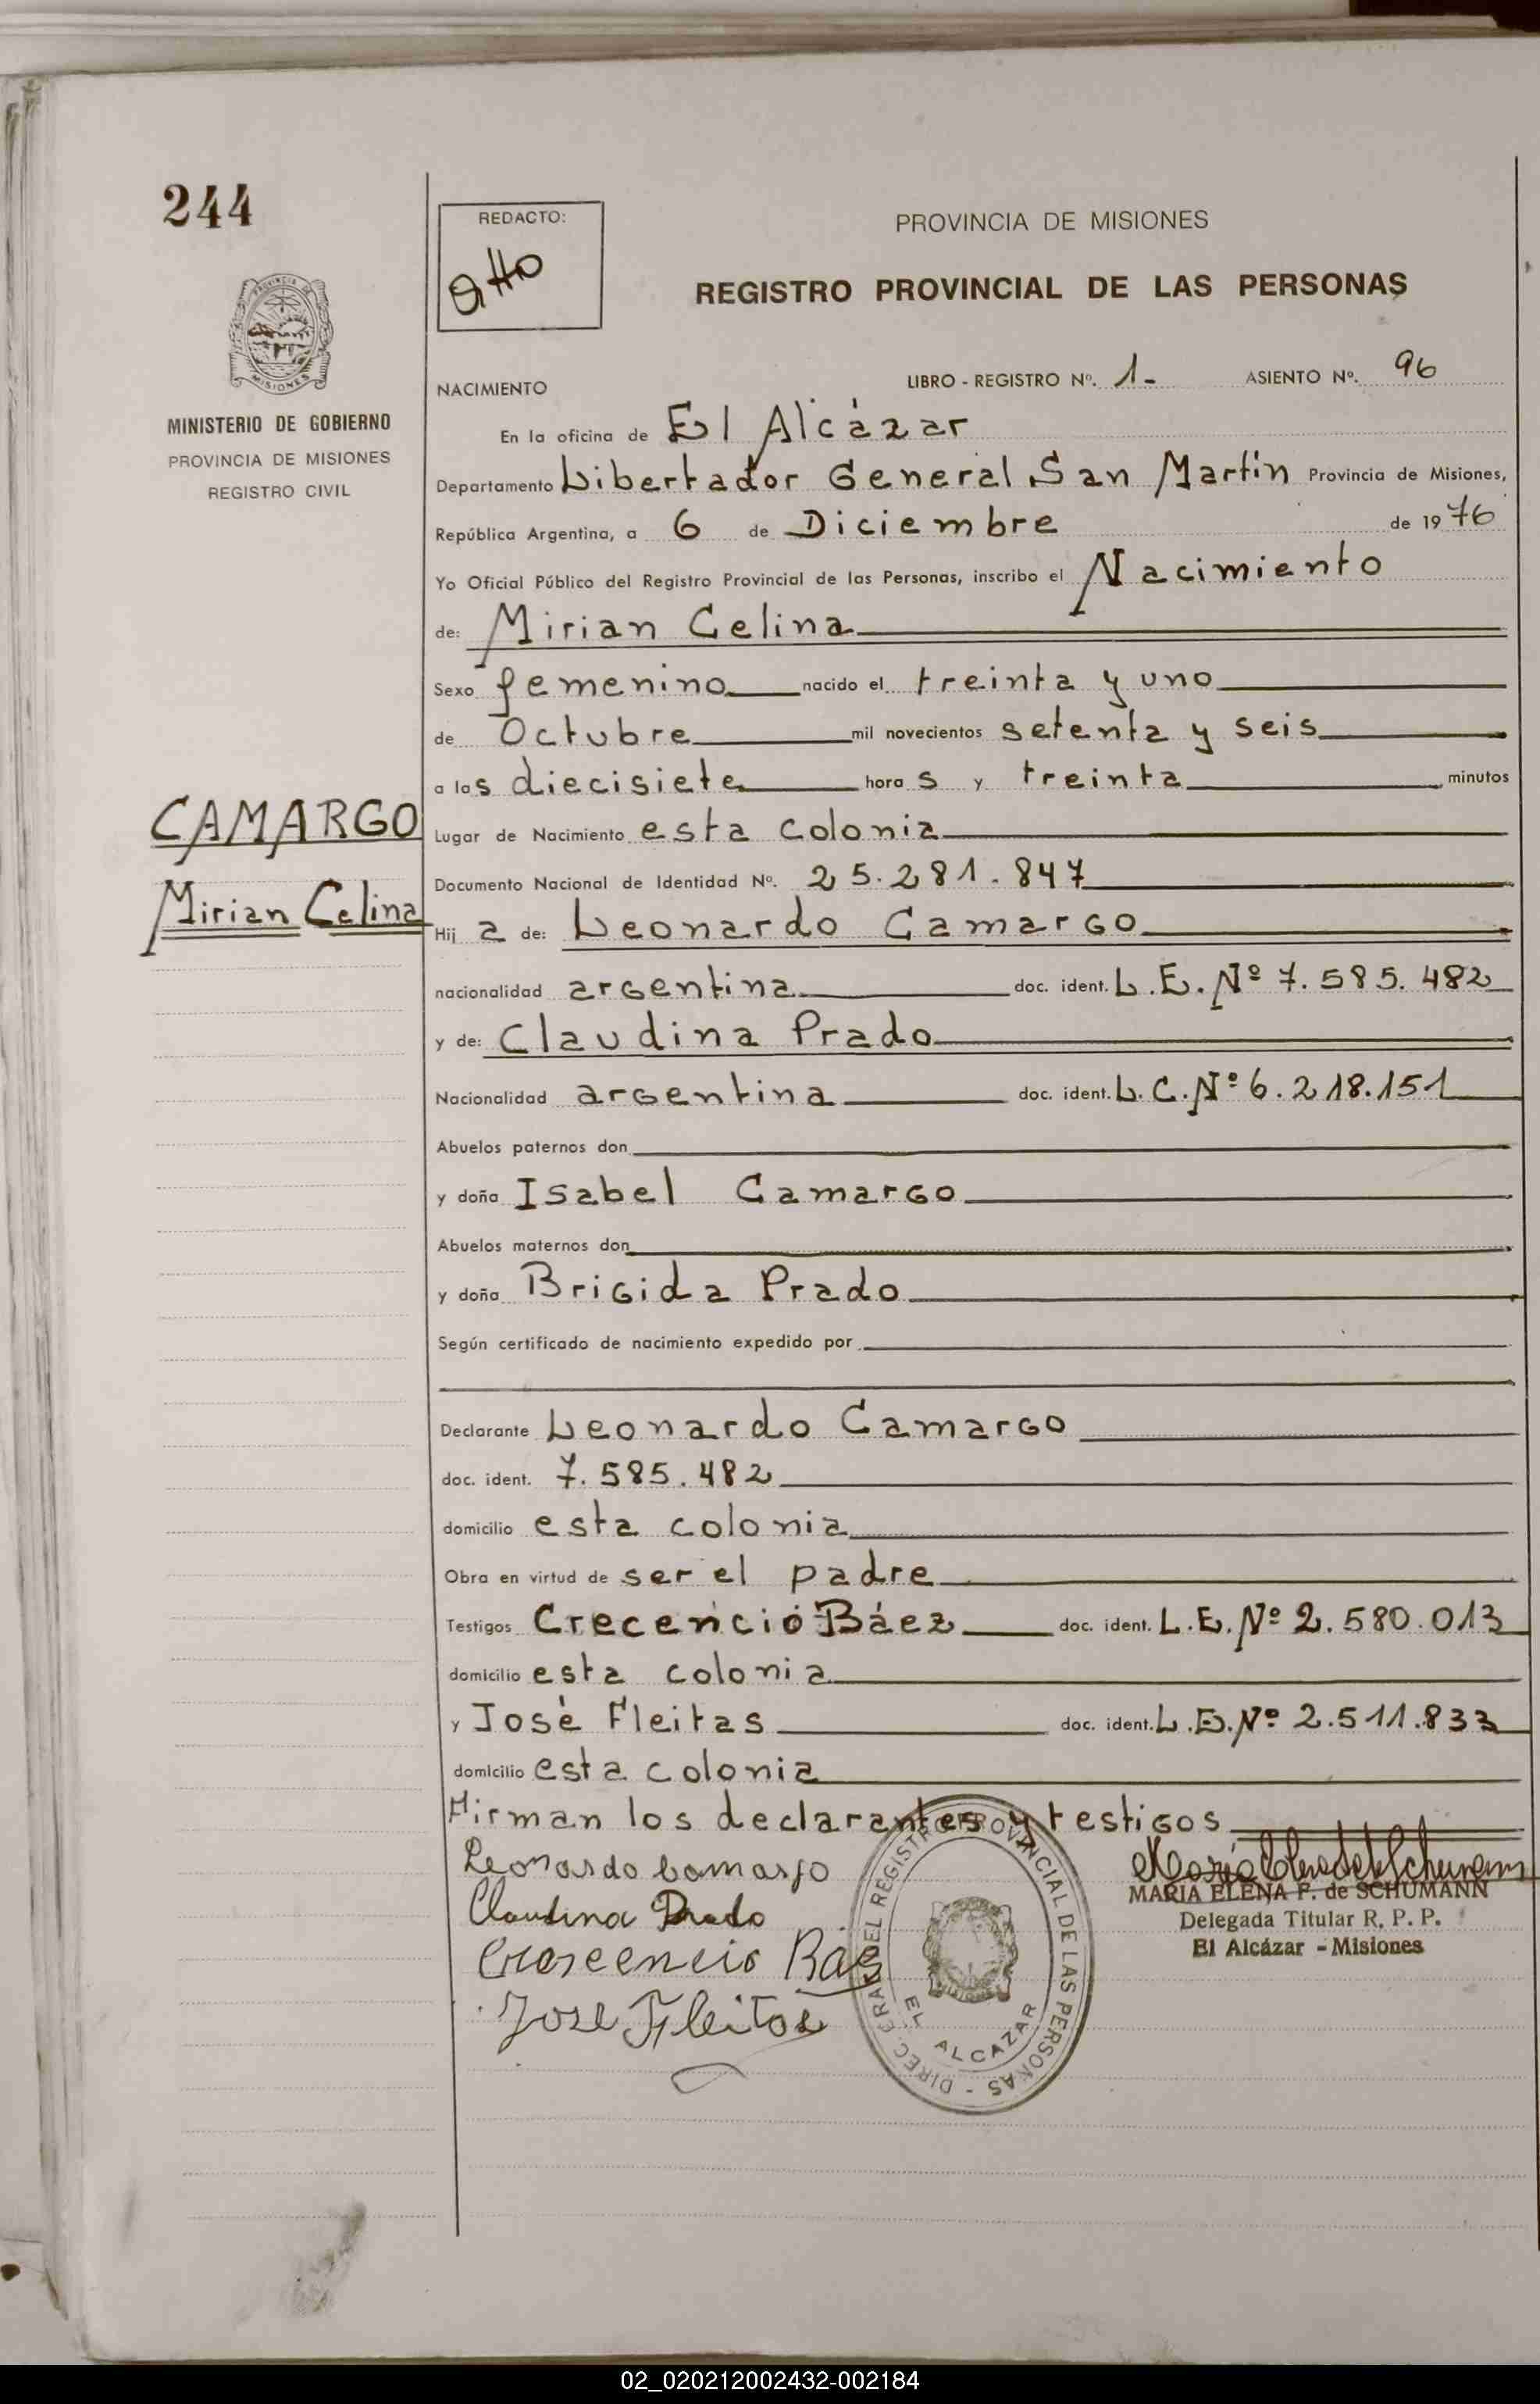 244
REDACTO:
Otto
PROVINCIA DE MISIONES
REGISTRO PROVINCIAL DE LAS PERSONAS
MISIONES
MINISTERIO DE GOBIERNO
PROVINCIA DE MISIONES
REGISTRO CIVIL
NACIMIENTO LIBRO - REGISTRO Nº. 1- ASIENTO Nº. 96
En la oficina de El Alcázar
Departamento Libertador General San Martín Provincia de Misiones,
República Argentina, a 6 de Diciembre de 1976
Yo Oficial Público del Registro Provincial de las Personas, inscribo el Nacimiento
de: Mirian Celina
Sexo femenino nacido el treinta y uno
de Octubre mil novecientos setenta y seis
a las diecisiete horas y treinta minutos
CAMARGO
Mirian Celina
Lugar de Nacimiento esta colonia
Documento Nacional de Identidad Nº. 25.281.847
Hija de: Leonardo Camargo
nacionalidad argentina doc. ident. L.E. Nº 7.585.482
y de: Claudina Prado
Nacionalidad argentina doc. ident. L.C. Nº 6.218.151
Abuelos paternos don
y doña Isabel Camargo
Abuelos maternos don
y doña Brigida Prado
Según certificado de nacimiento expedido por
Declarante Leonardo Camargo
doc. ident. 7.585.482
domicilio esta colonia
Obra en virtud de ser el padre
Testigos Crecencio Báez doc. ident. L.E. Nº 2.580.013
domicilio esta colonia
y José Fleitas doc. ident. L.E. Nº 2.511.833
domicilio esta colonia
Firman los declarantes y testigos
Leonardo Camargo
Claudina Prado
Crescencio Báez
Jose Fleitas
REGISTRO PROVINCIAL DE LAS PERSONAS - DIREC.
EL ALCAZAR
MARIA ELENA F. de SCHUMANN
Delegada Titular R. P. P.
El Alcázar - Misiones
02_020212002432-002184